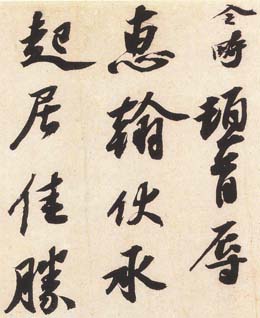 令畤頓首辱
惠翰伏承
起居佳勝